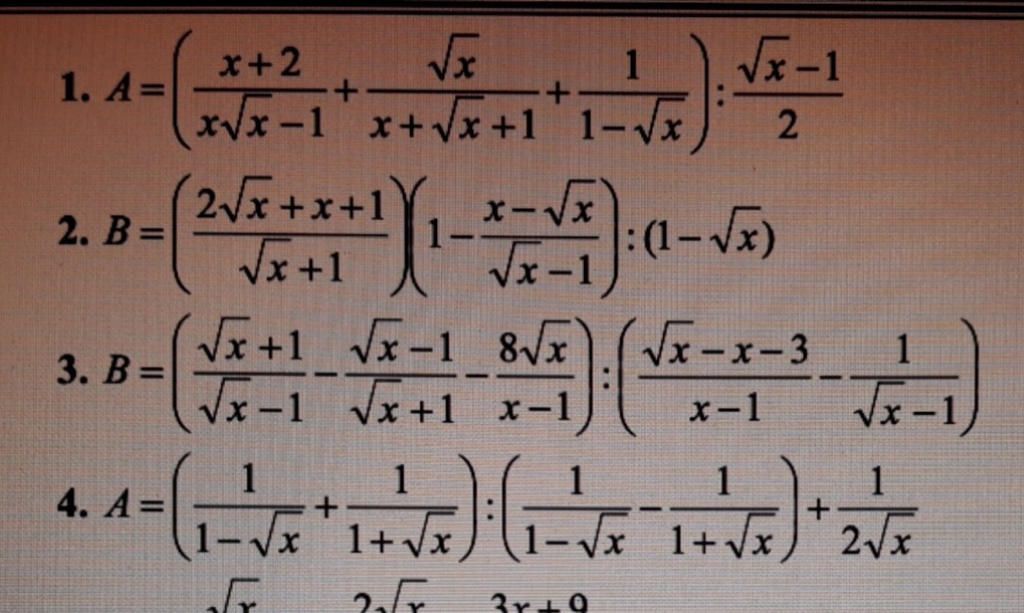 1. A = ( (x+2)/(x√x−1) + √x/(x+√x+1) + 1/(1−√x) ) : (√x−1)/2
2. B = ( (2√x+x+1)/(√x+1) )( 1 − (x−√x)/(√x−1) ) : (1−√x)
3. B = ( (√x+1)/(√x−1) − (√x−1)/(√x+1) − 8√x/(x−1) ) : ( (√x−x−3)/(x−1) − 1/(√x−1) )
4. A = ( 1/(1−√x) + 1/(1+√x) ) : ( 1/(1−√x) − 1/(1+√x) ) + 1/(2√x)
√x 2√x 3x+9